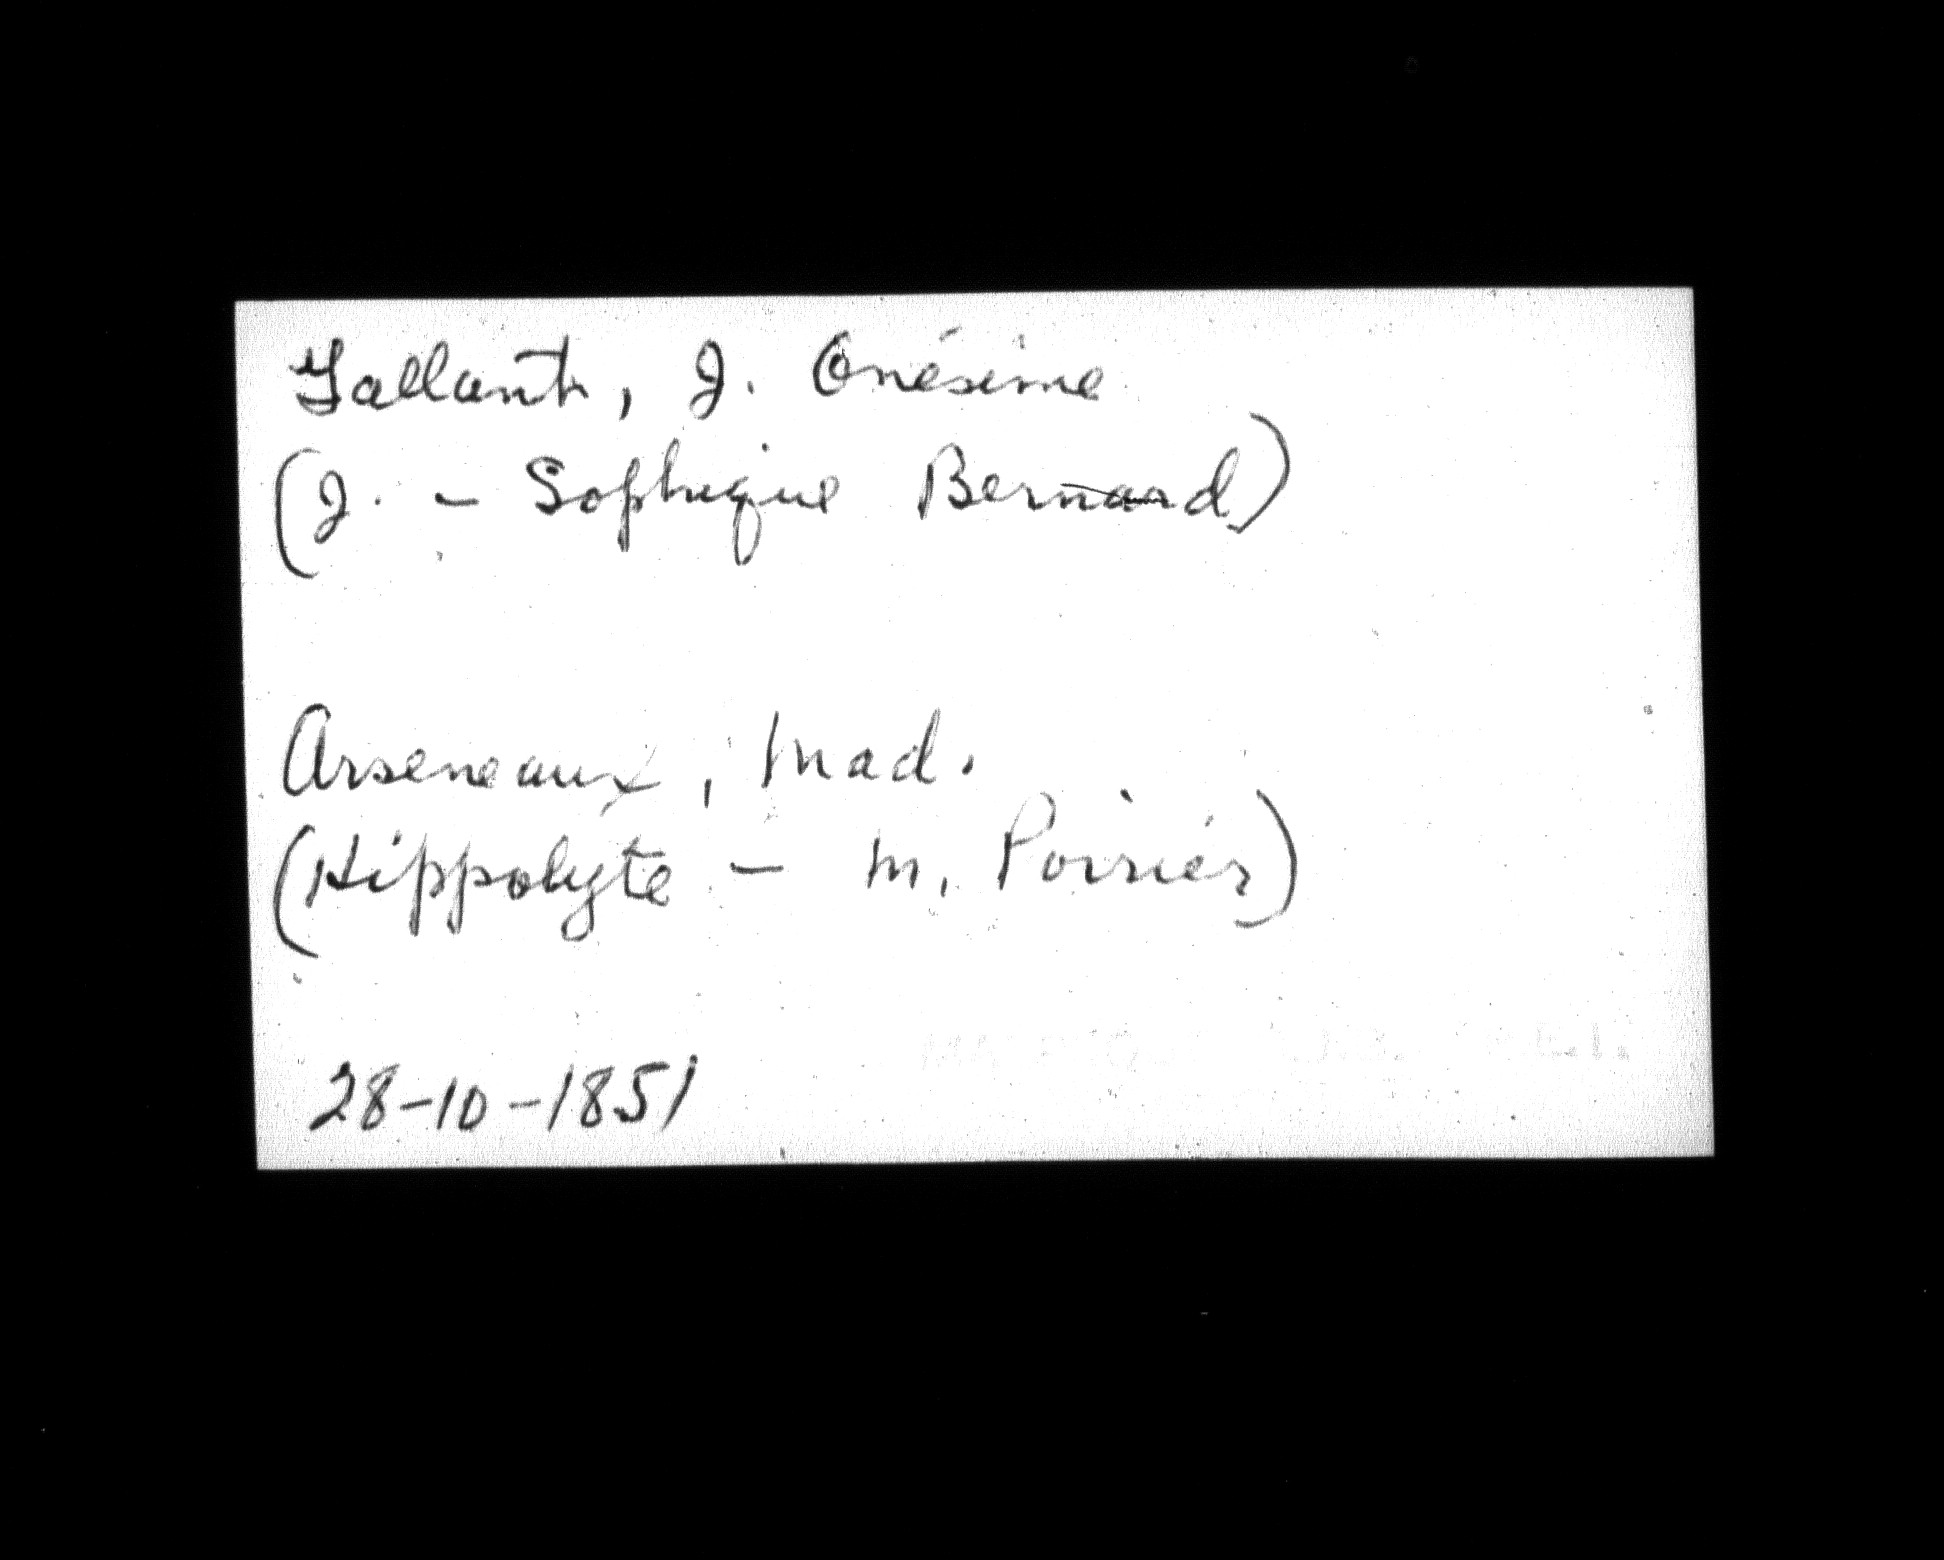 Gallant, J. Onésime
(J. - Sophique Bernard)
Arseneaux, Mad.
(Hippolyte - M. Poirier)
28-10-1851